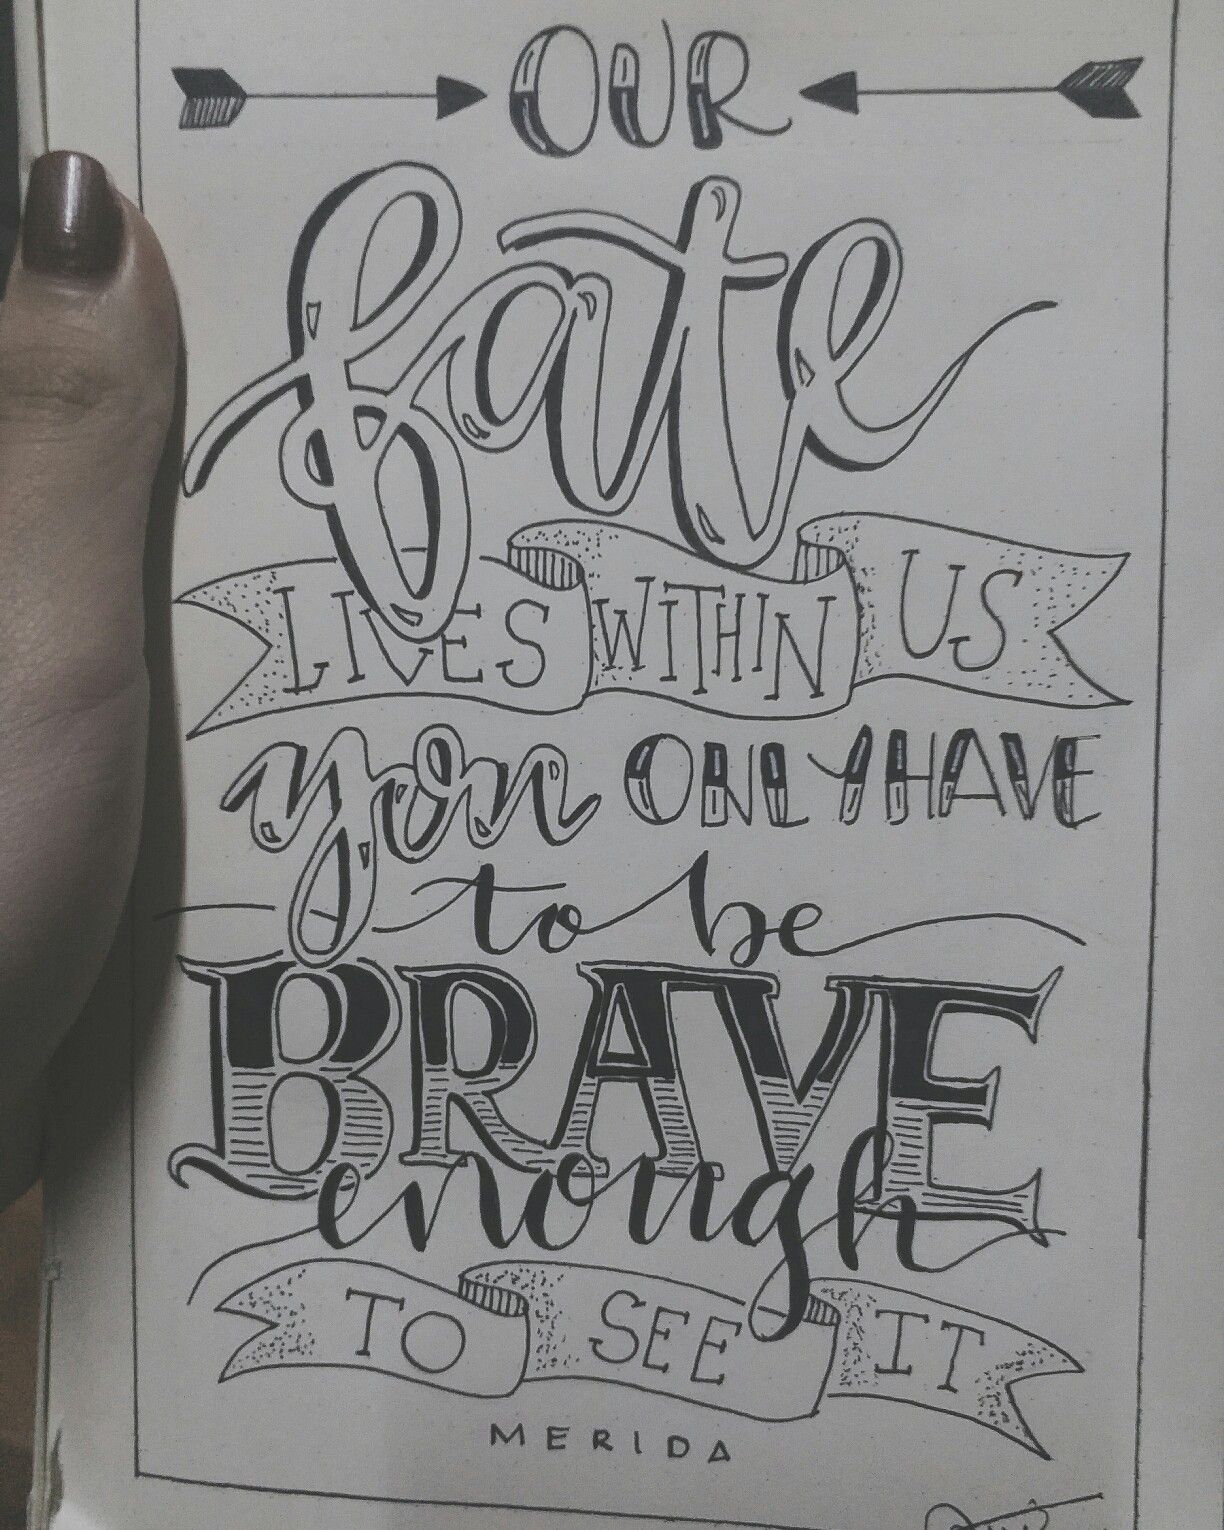 OUR
fate
LIVES WITHIN US
you ONLY HAVE
to be
BRAVE
enough
TO SEE IT
MERIDA